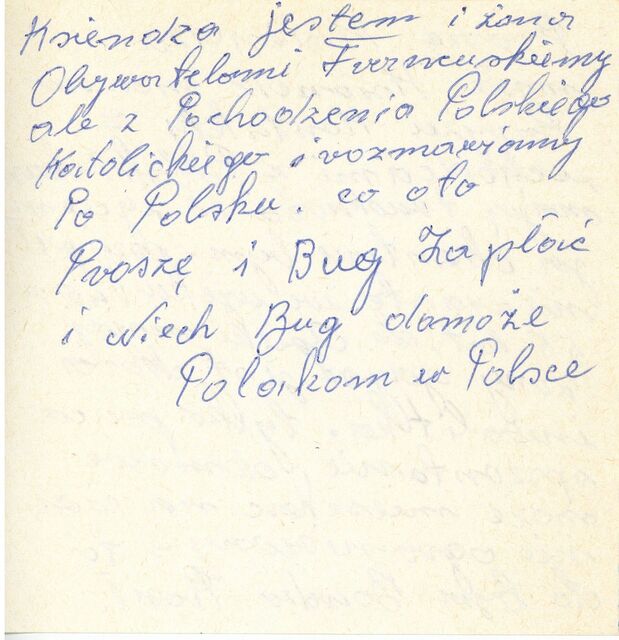 Ksiendza jestem i żona
Obywatelami Francuskiemy
ale z Pochodzenia Polskiego
Katolickiego i rozmawiamy
Po Polsku. co oto
Proszę i Bug Zapłaić
i Niech Bug domoże
Polakom w Polsce